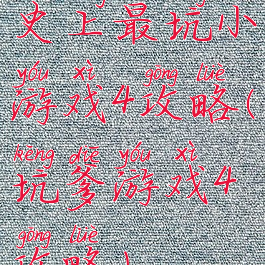 史上最坑小
yóu xì gōng lüè
游戏4攻略(
kēng diē yóu xì
坑爹游戏4
gōng lüè
攻略)